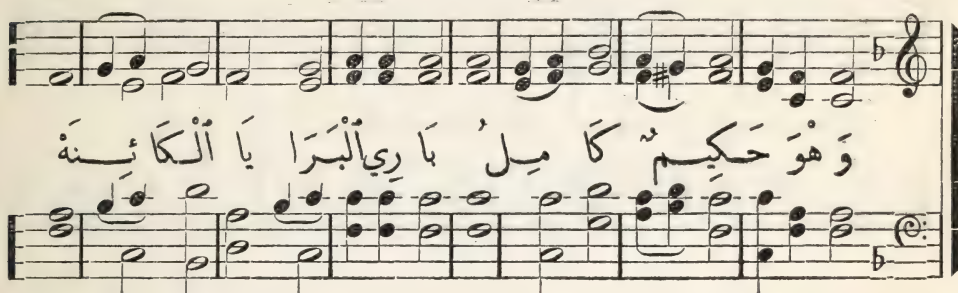 وَ هْوَ حَكِيمٌ كَا مِلُ بَا رِي ٱلْبَرَا يَا ٱلْكَائِنَهْ